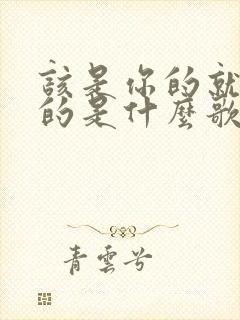 該是你的就
的是什麼歌
青雲兮